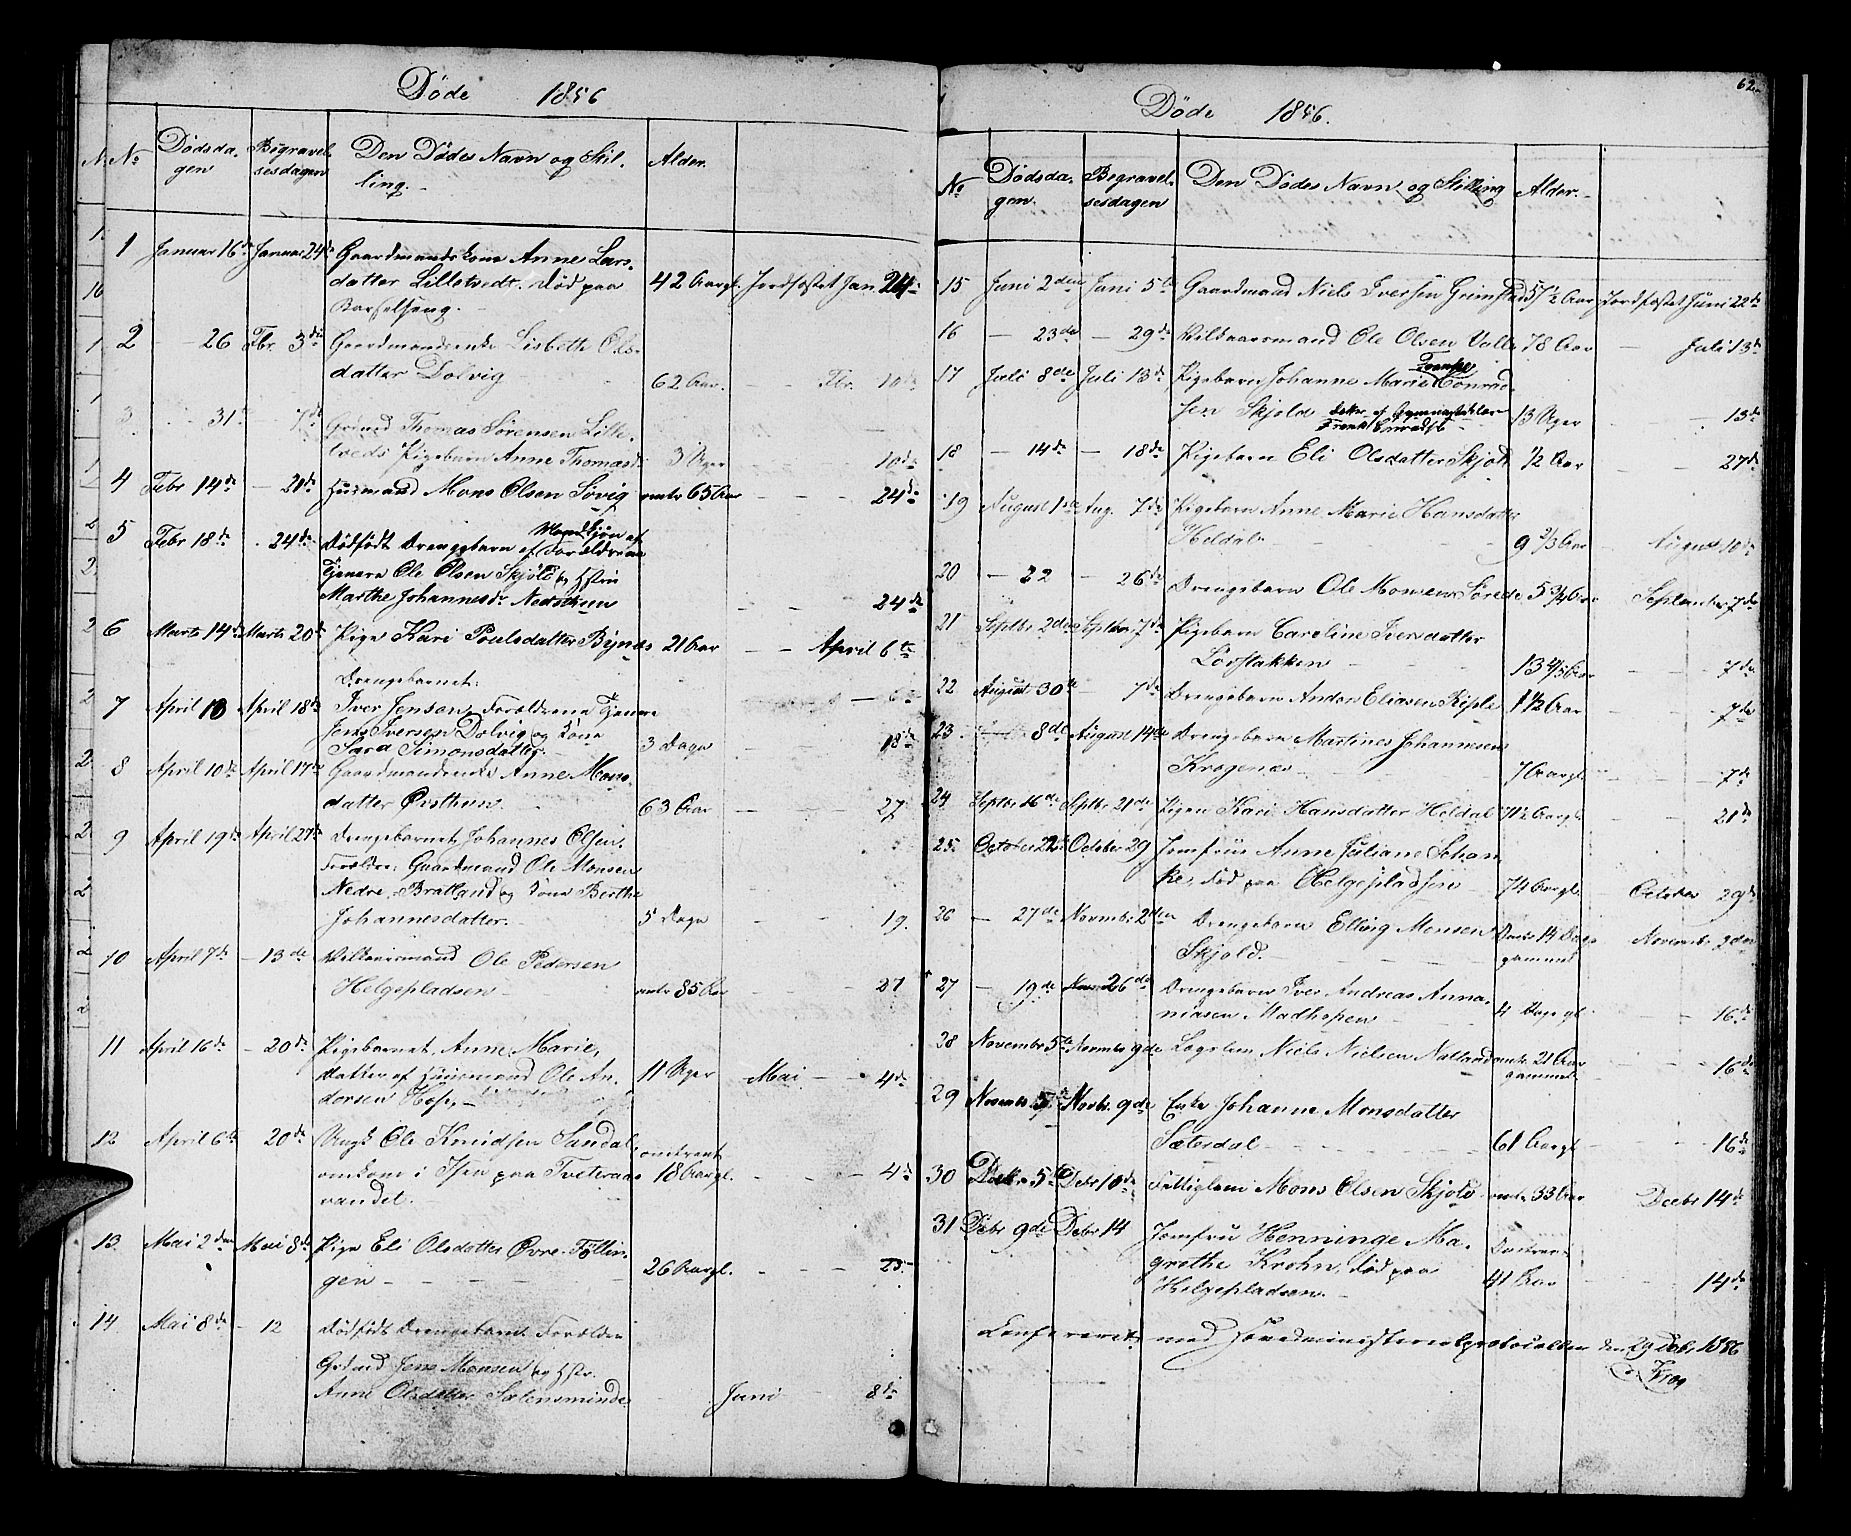 Døde 1856
No Dødsda- Begravel- Den Dødes Navn og Stil- Alder.
gen sesdagen ling.
1 Januar 16de Januar 24de Gaardmandskone Anne Lars-
datter Lilletvedt. død paa 42 Aargl. Jordfæstet Jan 24de
Barselseng.
2 - 26 Fbr. 3die Gaardmandsenke Lisbeth Ols-
datter Dolvig 62 Aar. - Fbr. 10de
3. - 31te - 7de Grdmd Thomas Sørensen Lille-
tveds Pigebarn Anne Thomasd. 3 Uger - 10de
4 Febr 14de - 20de Huusmand Mons Olsen Søvig omtr 65 Aar - - 24de
Mandkjøn af
5 Febr 18de - 24de Dødfødt Drengebarn af Forældrene
Tjenere Ole Olsen Skjold og Hstru
Marthe Johannesdr Nedstthun - - 24de
6 Marts 14de Marts 20de Pige Kari Poulsdatter Byndes 21 Aar - - April 6te
Drengebarnet:
7 April 13 April 18de Iver Jensen, Forældrene Tjenere - 6te
Jens Iversen Dolvig og Kone
Sara Simonsdatter. 3 Dage 18de
8 April 10de April 17de Gaardmandsenke Anne Mons-
datter Østthun 63 Aar - 27.
9 April 19de April 27de Drengebarnet, Johannes Olsen.
Forældre: Gaardmand Ole Monsen
Nedre-Bratland og Kone Berthe
Johannesdatter. 5 Dage - - 19.
10 April 7de - 13de Vilkaarsmand Ole Pedersen
Helgepladsen omtr 85 Aar - - 27
11 April 16de - 20de Pigebarnet, Anne Marie,
Datter af Huusmand Ole An-
dersen Hop, 11 Uger Mai - - 4de
12 April 6te 20de Ungk Ole Knudsen Sandal omtrent
omkom i Isen paa Tveteraas 18 Aargl. - - 4de
vandet.
13. Mai 2den Mai 8de Pige Eli Olsdatter Øvre-Tøllin-
gen 26 Aargl. - - 25
14 Mai 8de - 12 Dødfødt Drengebarn Forældre
Grdmd Jens Monsen og Hstr.
Anne Olsdatter Sælensminde - Juni - 8de
62.
Døde 1856.
No Dødsda- Begravel- Den Dødes Navn og Stilling Alder.
gen. sesdagen
15 Juni 2den Juni 5te Gaardmand Niels Iversen Grimstad 57 1/2 Aar Jordfæstet Juni 22de
16 - 23de - 29de Vilkaarsmand Ole Olsen Valle 78 Aar - Juli 13de
17 Juli 8de Juli 13de Pigebarn Johanne Marie Conrad-
sen Skjold Datter af Gymnastiklærer 13 Uger - - 13de
18 - 14de - 18de Pigebarn Eli Olsdatter Skjold 1/2 Aar - - 27de
19 August 1ste Aug. 7de Pigebarn Anne Marie Hansdatter
Heldal 9 2/3 Aar - August 10de
20 - 22 - 26de Drengebarn Ole Monsen Sørede 5 3/4 Aar September 7de
21 Septbr 2den Septbr 7de Pigebarn Caroline Iversdatter
Løvstakken 13 4/5 Aar - - 7de
22 August 30te - 7de Drengebarn Anders Eliasen Riple 1 1/2 Aar - - 7de
23. 8de August 14de Drengebarn Martines Johannesen
Kragenæs 7 Aargl. - - 7de
24 Septbr 16de Septbr 21de Pigen Kari Hansdatter Heldal 71 1/2 Aargl - - 21de
25 October 22de October 29 Jomfru Anne Juliane Schan-
ke, død paa Helgepladsen 74 Aargl. October 29de
26 - 27de Novembr 2den Drengebarn Elling Monsen Omtr 14 Dage
Skjold. gammel Novembr 2den
27 - 19de 26de Drengebarn Iver Andreas Anna-
niasen Madhopen 4 Dage gl. - - 16de
28 Novembr 5te Novmbr 9de Lægslem Niels Nielsen Natland omtr. 21 Aar
gammel - - 16de
29 Novembr 5te Novbr. 9de Enke Johanne Monsdatter
Sæterdal 61 Aargl - - 16de
30 Decbr. 5te Decbr 10de Fattiglem Mons Olsen Skjold omtr 33 Aar Decbr 14de
31 Decbr 9de Decbr 14 Jomfru Henninge Ma- Omtrent
grethe Krohn, død paa 41 Aar - 14de
Helgepladsen.
Confereret med Hovedministerialprotocollen den 29 Decbr 1856
Krog